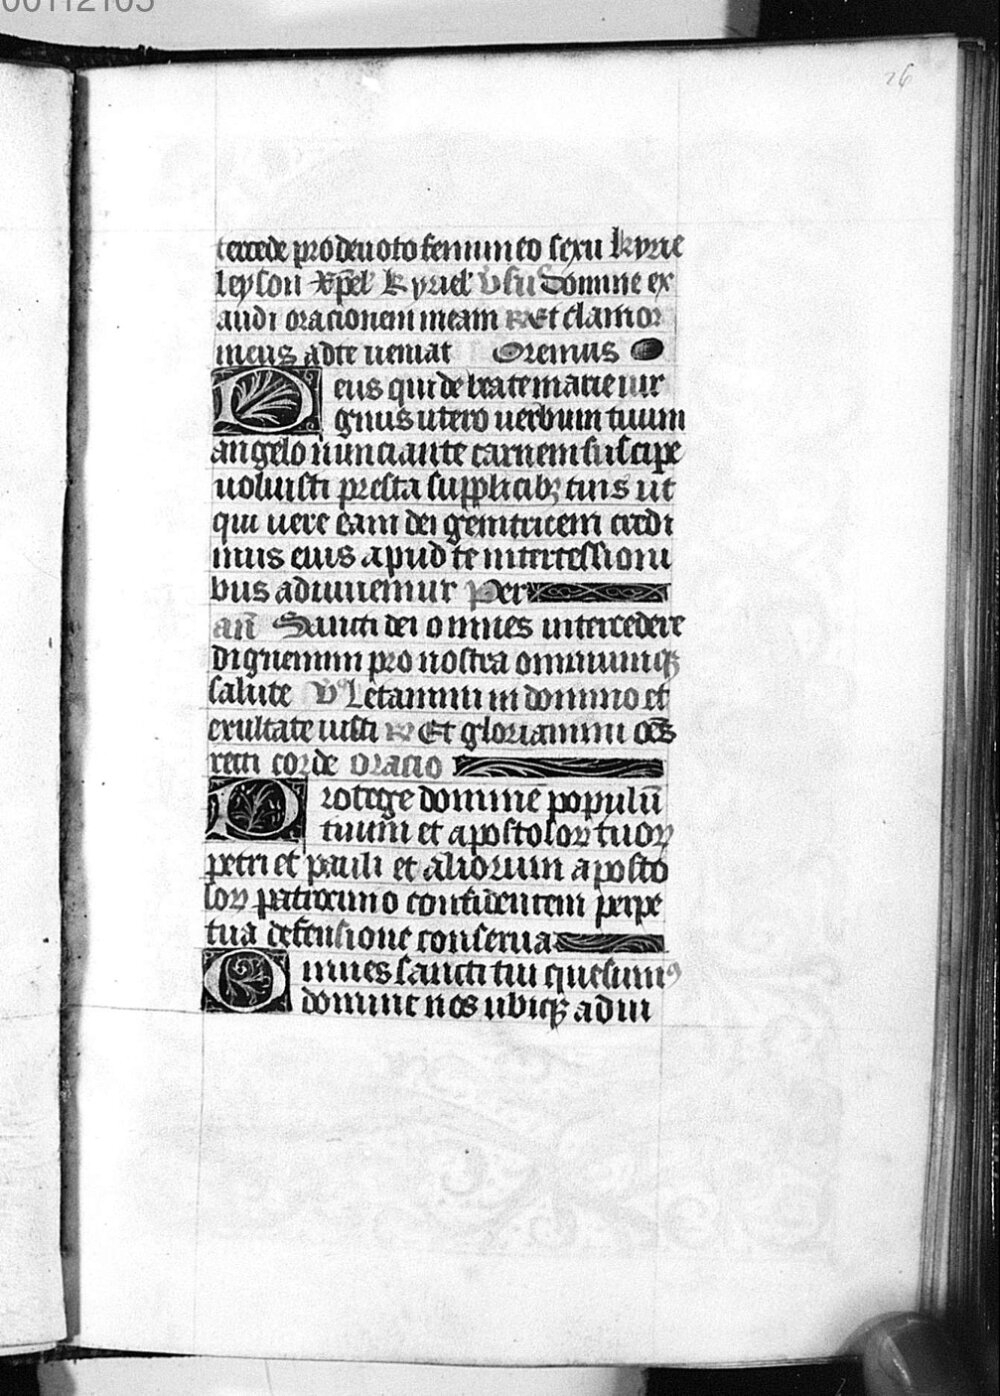 00112105
26
tercede pro deuoto femineo sexu kyrie
leyson xp̄el' kyriel' v̄su Domine ex
audi oracionem meam R Et clamor
meus ad te ueniat Oremus
Deus qui de beate marie uir
ginis utero uerbum tuum
angelo nunciante carnem suscipe
uoluisti presta supplicibꝫ tuis ut
qui uere eam dei genitricem credi
mus eius apud te intercessioni
bus adiuuemur Per
an̄ Sancti dei omnes intercedere
dignemini pro nostra omniumqꝫ
salute v̊ Letamini in domino et
exultate iusti R Et gloriamini oēs
recti corde oracio
Protege domine populū
tuum et apostoloꝝ tuoꝝ
petri et pauli et aliorum aposto
loꝝ patrocinio confidentem perpe
tua defensione conserua
Omnes sancti tui quesumꝰ
domine nos ubiqꝫ adiu